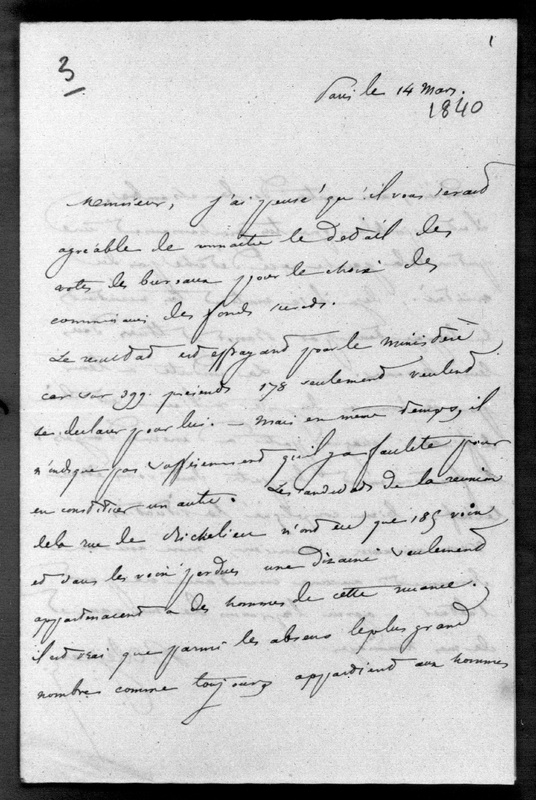 1
3
Paris le 14 Mars.
1840
Monsieur, j'ai pensé qu'il vous serait
agréable de connaitre le détail des
votes des bureaux pour le choix des
commissaires des fonds secrets.
Le resultat est effrayant pour le ministère
car sur 399 présents 178 seulement veulent
se déclarer pour lui. - mais en même temps, il
n'indique pas suffisemment qu'il y a facilité pour
en constituer un autre. Les candidats de la reunion
de la rue de Richelieu n'ont eu que 185 voix
et dans les voix perdues une dizaine seulement
appartiennent à des hommes de cette nuance.
il est vrai que parmi les absens le plus grand
nombre comme toujours appartient aux hommes